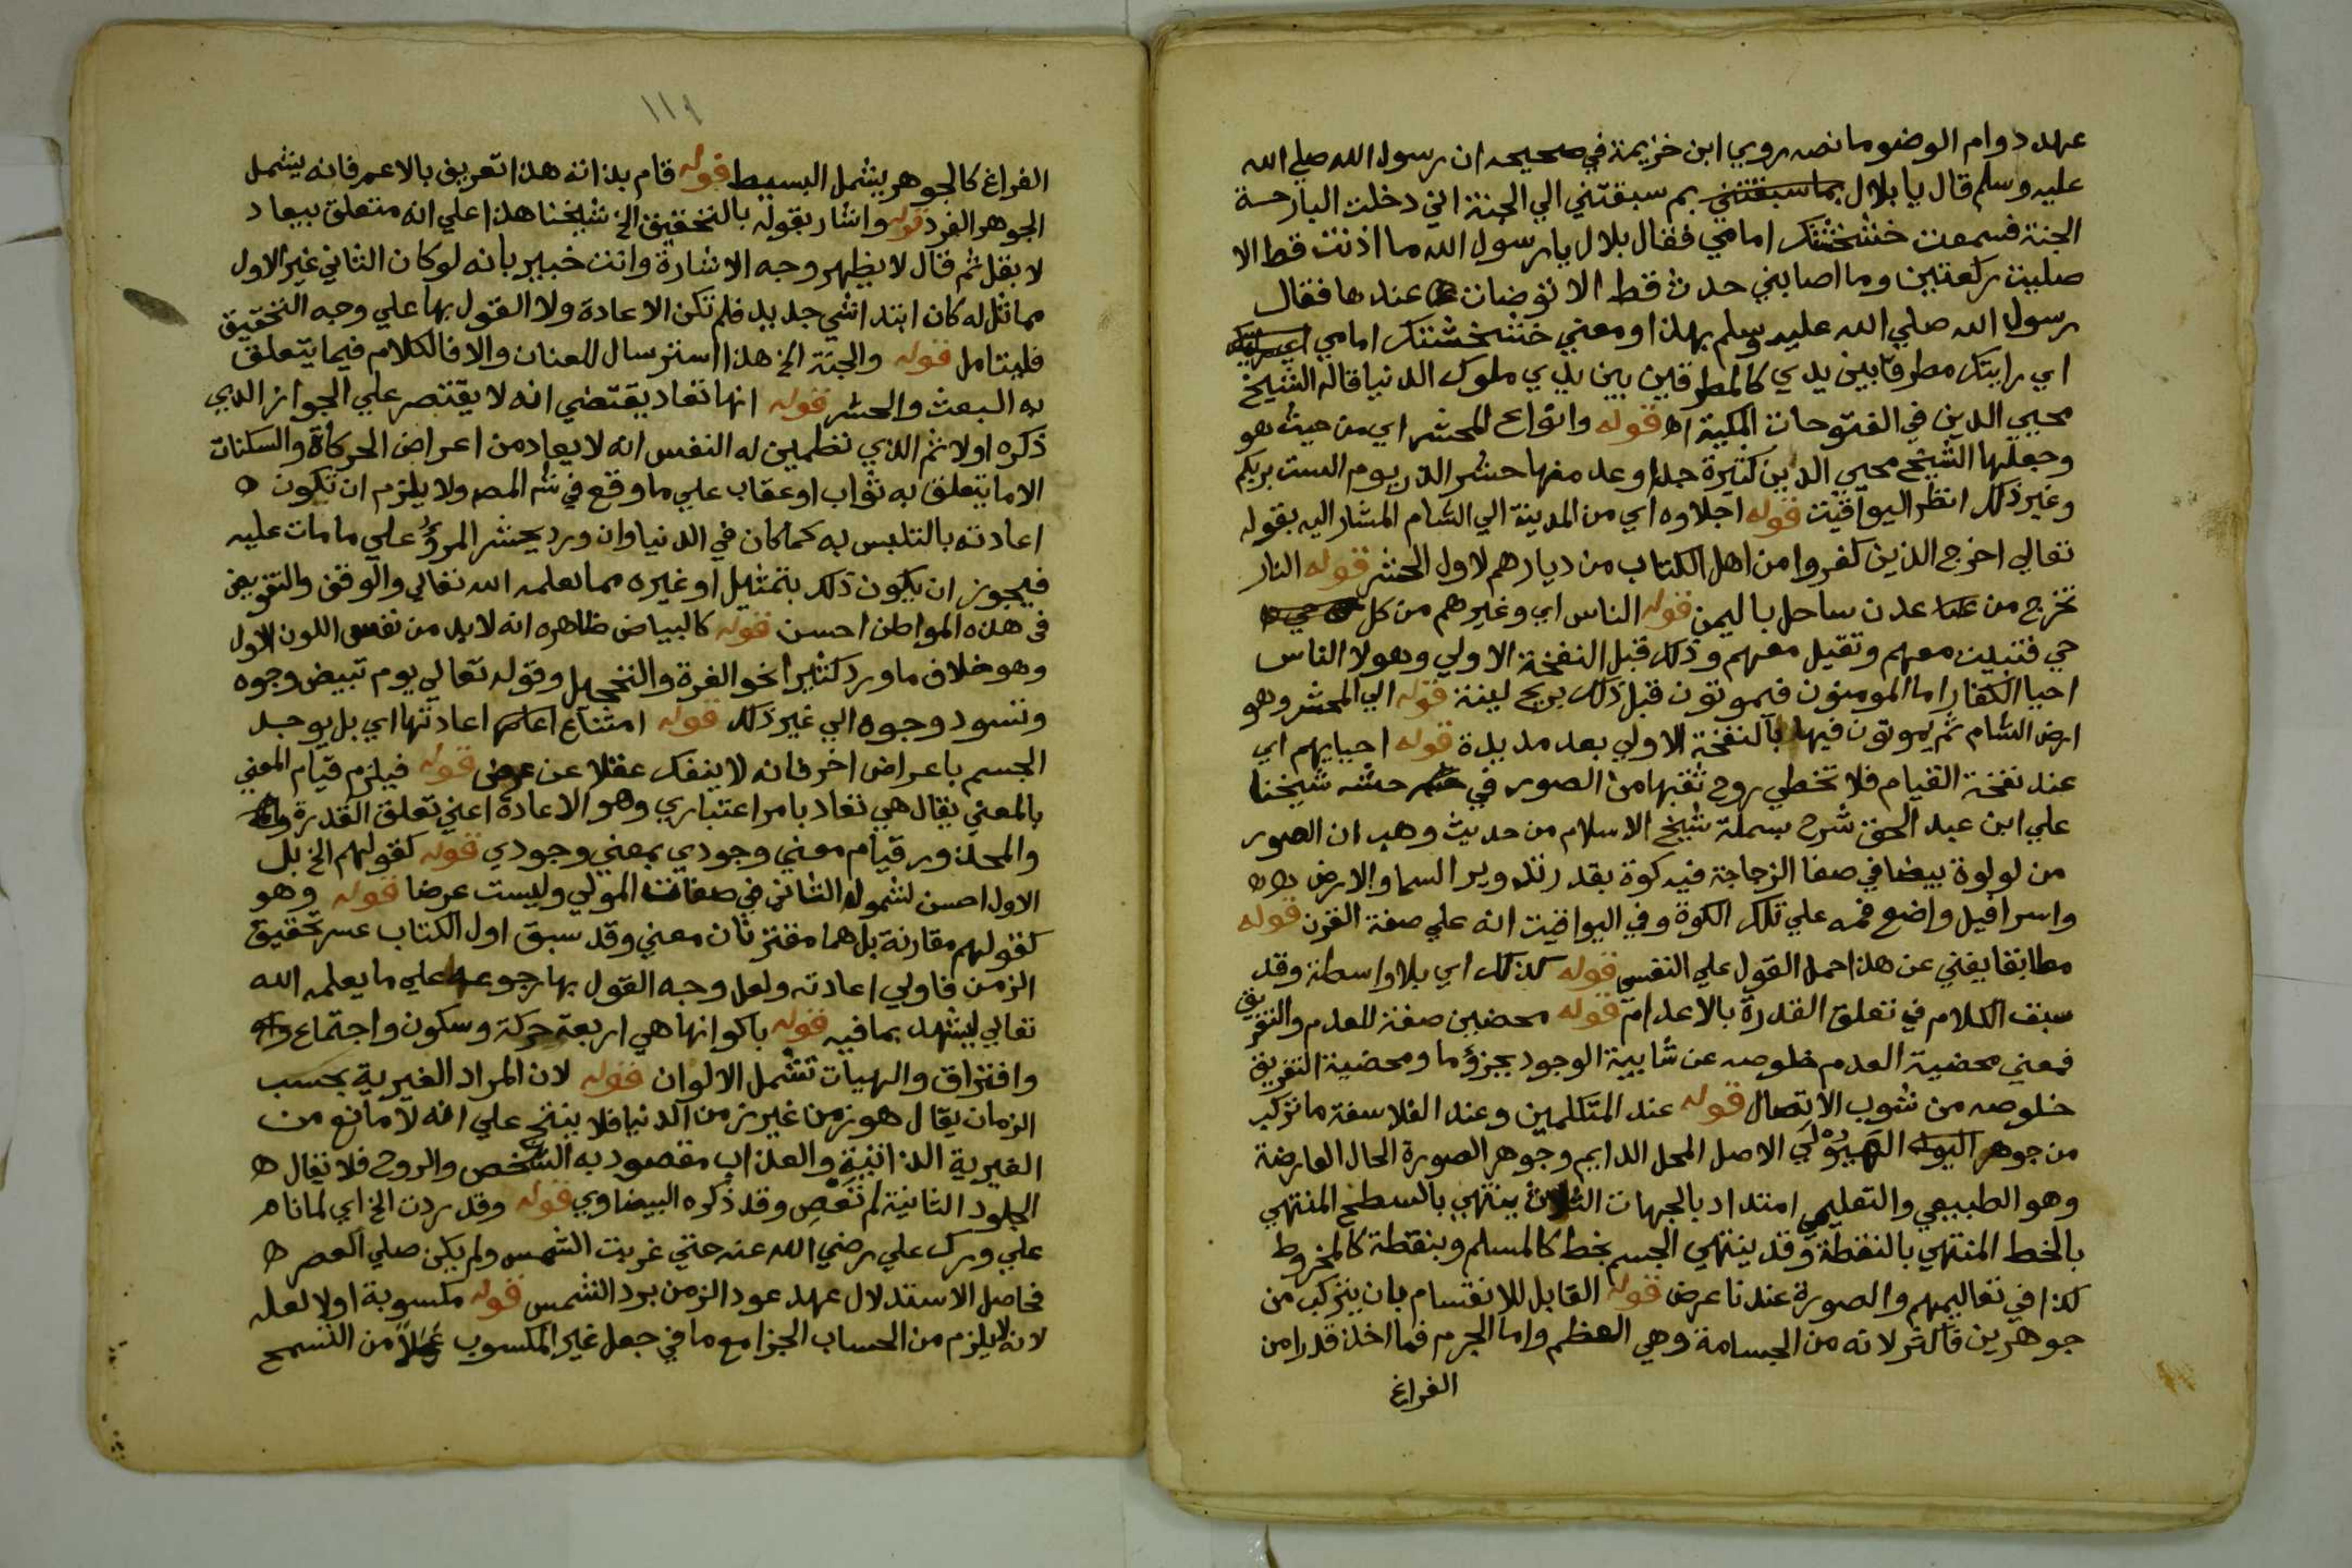 عهد دوام الوضو ما نصه روي ابن خزيمة في صحيحه ان رسول الله صلي الله
عليه وسلم قال يا بلال بما سبقتني بم سبقتني الي الجنة اني دخلت البارحة
الجنة فسمعت خشخشتك امامي فقال بلال يا رسول الله ما اذنت قط الا
صليت ركعتين وما اصابني حدث قط الا توضات عندها فقال
رسول الله صلي الله عليه وسلم بهذا ومعني خشخشتك امامي
اي رايتك مطرقا بين يدي كالمطرقين بين يدي ملوك الدنيا قاله الشيخ
محيي الدين في الفتوحات المكية اه قوله وانواع المحشر اي من حيث هو
وجعلها الشيخ محيي الدين كثيرة جدا وعد منها حشر الذر يوم الست بربكم
وغير ذلك انظر اليواقيت قوله اجلاوه اي من المدينة الي الشام المشار اليه بقوله
تعالي اخرج الذين كفروا من اهل الكتاب من ديارهم لاول الحشر قوله النار
تخرج من عدن ساحل باليمن قوله الناس اي وغيرهم من كل
حي فتبيت معهم وتقيل معهم وذلك قبل النفخة الاولي وهولا الناس
احيا الكفار اما المومنون فيموتون قبل ذلك بريح لينة قوله الي المحشر وهو
ارض الشام ثم يموتون فيها بالنفخة الاولي بعد مديدة قوله احيايهم اي
عند نفخة القيام فلا تخطي روح ثقبها من الصور في حشه شيخنا
علي ابن عبد الحق شرح بسملة شيخ الاسلام من حديث وهب ان الصور
من لولوة بيضا في صفا الزجاجة فيه كوة بقدر تدوير السما والارض
واسرافيل واضع فمه علي تلك الكوة وفي اليواقيت انه علي صفة القرن قوله
مطابقا يغني عن هذا حمل القول علي النفسي قوله كذلك اي بلا واسطة وقد
سبق الكلام في تعلق القدرة بالاعدام قوله محضين صفة للعدم والتفريق
فمعني محضية العدم خلوصه عن شايبة الوجود بجزؤ ما ومحضية التفريق
خلوصه من شوب الاتصال قوله عند المتكلمين وعند الفلاسفة ما تركب
من جوهر الهيولي الاصل المحل الدايم وجوهر الصورة الحال العارضة
وهو الطبيعي والتعليمي امتداد بالجهات الثلاث ينتهي بالسطح المنتهي
بالخط المنتهي بالنقطة وقد ينتهي الجسم بخط كالمسلم وبنقطة كالمخروط
كذا في تعاليمهم والصورة عندنا عرض قوله القابل للانقسام بان يتركب من
جوهرين فاكثر لانه من الجسامة وهي العظم واما الجرم فما اخذ قدرا من
الفراغ
١١٩
الفراغ كالجوهر يشمل البسيط قوله قام بذاته هذا تعريف بالاعم فانه يشمل
الجوهر الفرد قوله واشار بقوله بالتحقيق الخ شيخنا هذا علي انه متعلق بيعاد
لا بقل ثم قال لا يظهر وجه الاشارة وانت خبير بانه لو كان الثاني غير الاول
مماثل له كان ابتدا شي جديد فلم تكن الاعادة ولا القول بها علي وجه التحقيق
فليتامل قوله والجنة الخ هذا استرسال للعنان والا فالكلام فيما يتعلق
به البعث والحشر قوله انها تعاد يقتضي انه لا يقتصر علي الجواز الذي
ذكره اولا ثم الذي تطمين له النفس انه لا يعاد من اعراض الحركاة والسكنات
الا ما يتعلق به ثواب او عقاب علي ما وقع في شه المصه ولا يلزم ان تكون
اعادته بالتلبس به كما كان في الدنيا وان ورد يحشر المروُ علي ما مات عليه
فيجوز ان يكون ذلك بتمثيل او غيره مما يعلمه الله تعالي والوقف والتفويض
في هذه المواطن احسن قوله كالبياض ظاهره انه لا بد من نفس اللون الاول
وهو خلاف ما ورد كثيرا نحو الغرة والتحجيل وقوله تعالي يوم تبيض وجوه
وتسود وجوه الي غير ذلك قوله امتناع اعادتها اي بل يوجد
الجسم باعراض اخر فانه لا ينفك عقلا عن عرض قوله فيلزم قيام المعني
بالمعني يقال هي تعاد بامر اعتباري وهو الاعادة اعني تعلق القدرة
والمحذور قيام معني وجودي بمعني وجودي قوله كقولهم الخ بل
الاول احسن لشموله الثاني في صفات المولي وليست عرضا قوله وهو
كقولهم مقارنة بل هما مقترنان معني وقد سبق اول الكتاب عسر تحقيق
الزمن فاولي اعادته ولعل وجه القول بها رجوعه علي ما يعلمه الله
تعالي ليشهد بما فيه قوله باكوانها هي اربعة حركة وسكون واجتماع
وافتراق والهيات تشمل الالوان قوله لان المراد الغيرية بحسب
الزمان يقال هو زمن غير زمن الدنيا فلا ينتج علي انه لا مانع من
الغيرية الذاتية والعذاب مقصود به الشخص والروح فلا يقال
الجلود الثانية لم تعص وقد ذكره البيضاوي قوله وقد ردت الخ اي لما نام
علي ورك علي رضي الله عنه حتي غربت الشمس ولم يكن صلي العصر
فحاصل الاستدلال عهد عود الزمن برد الشمس قوله مكسوبة اولا لعله
لانه لا يلزم من الحساب الجزا مع ما في جعل غير المكسوب عملاً من التسمح